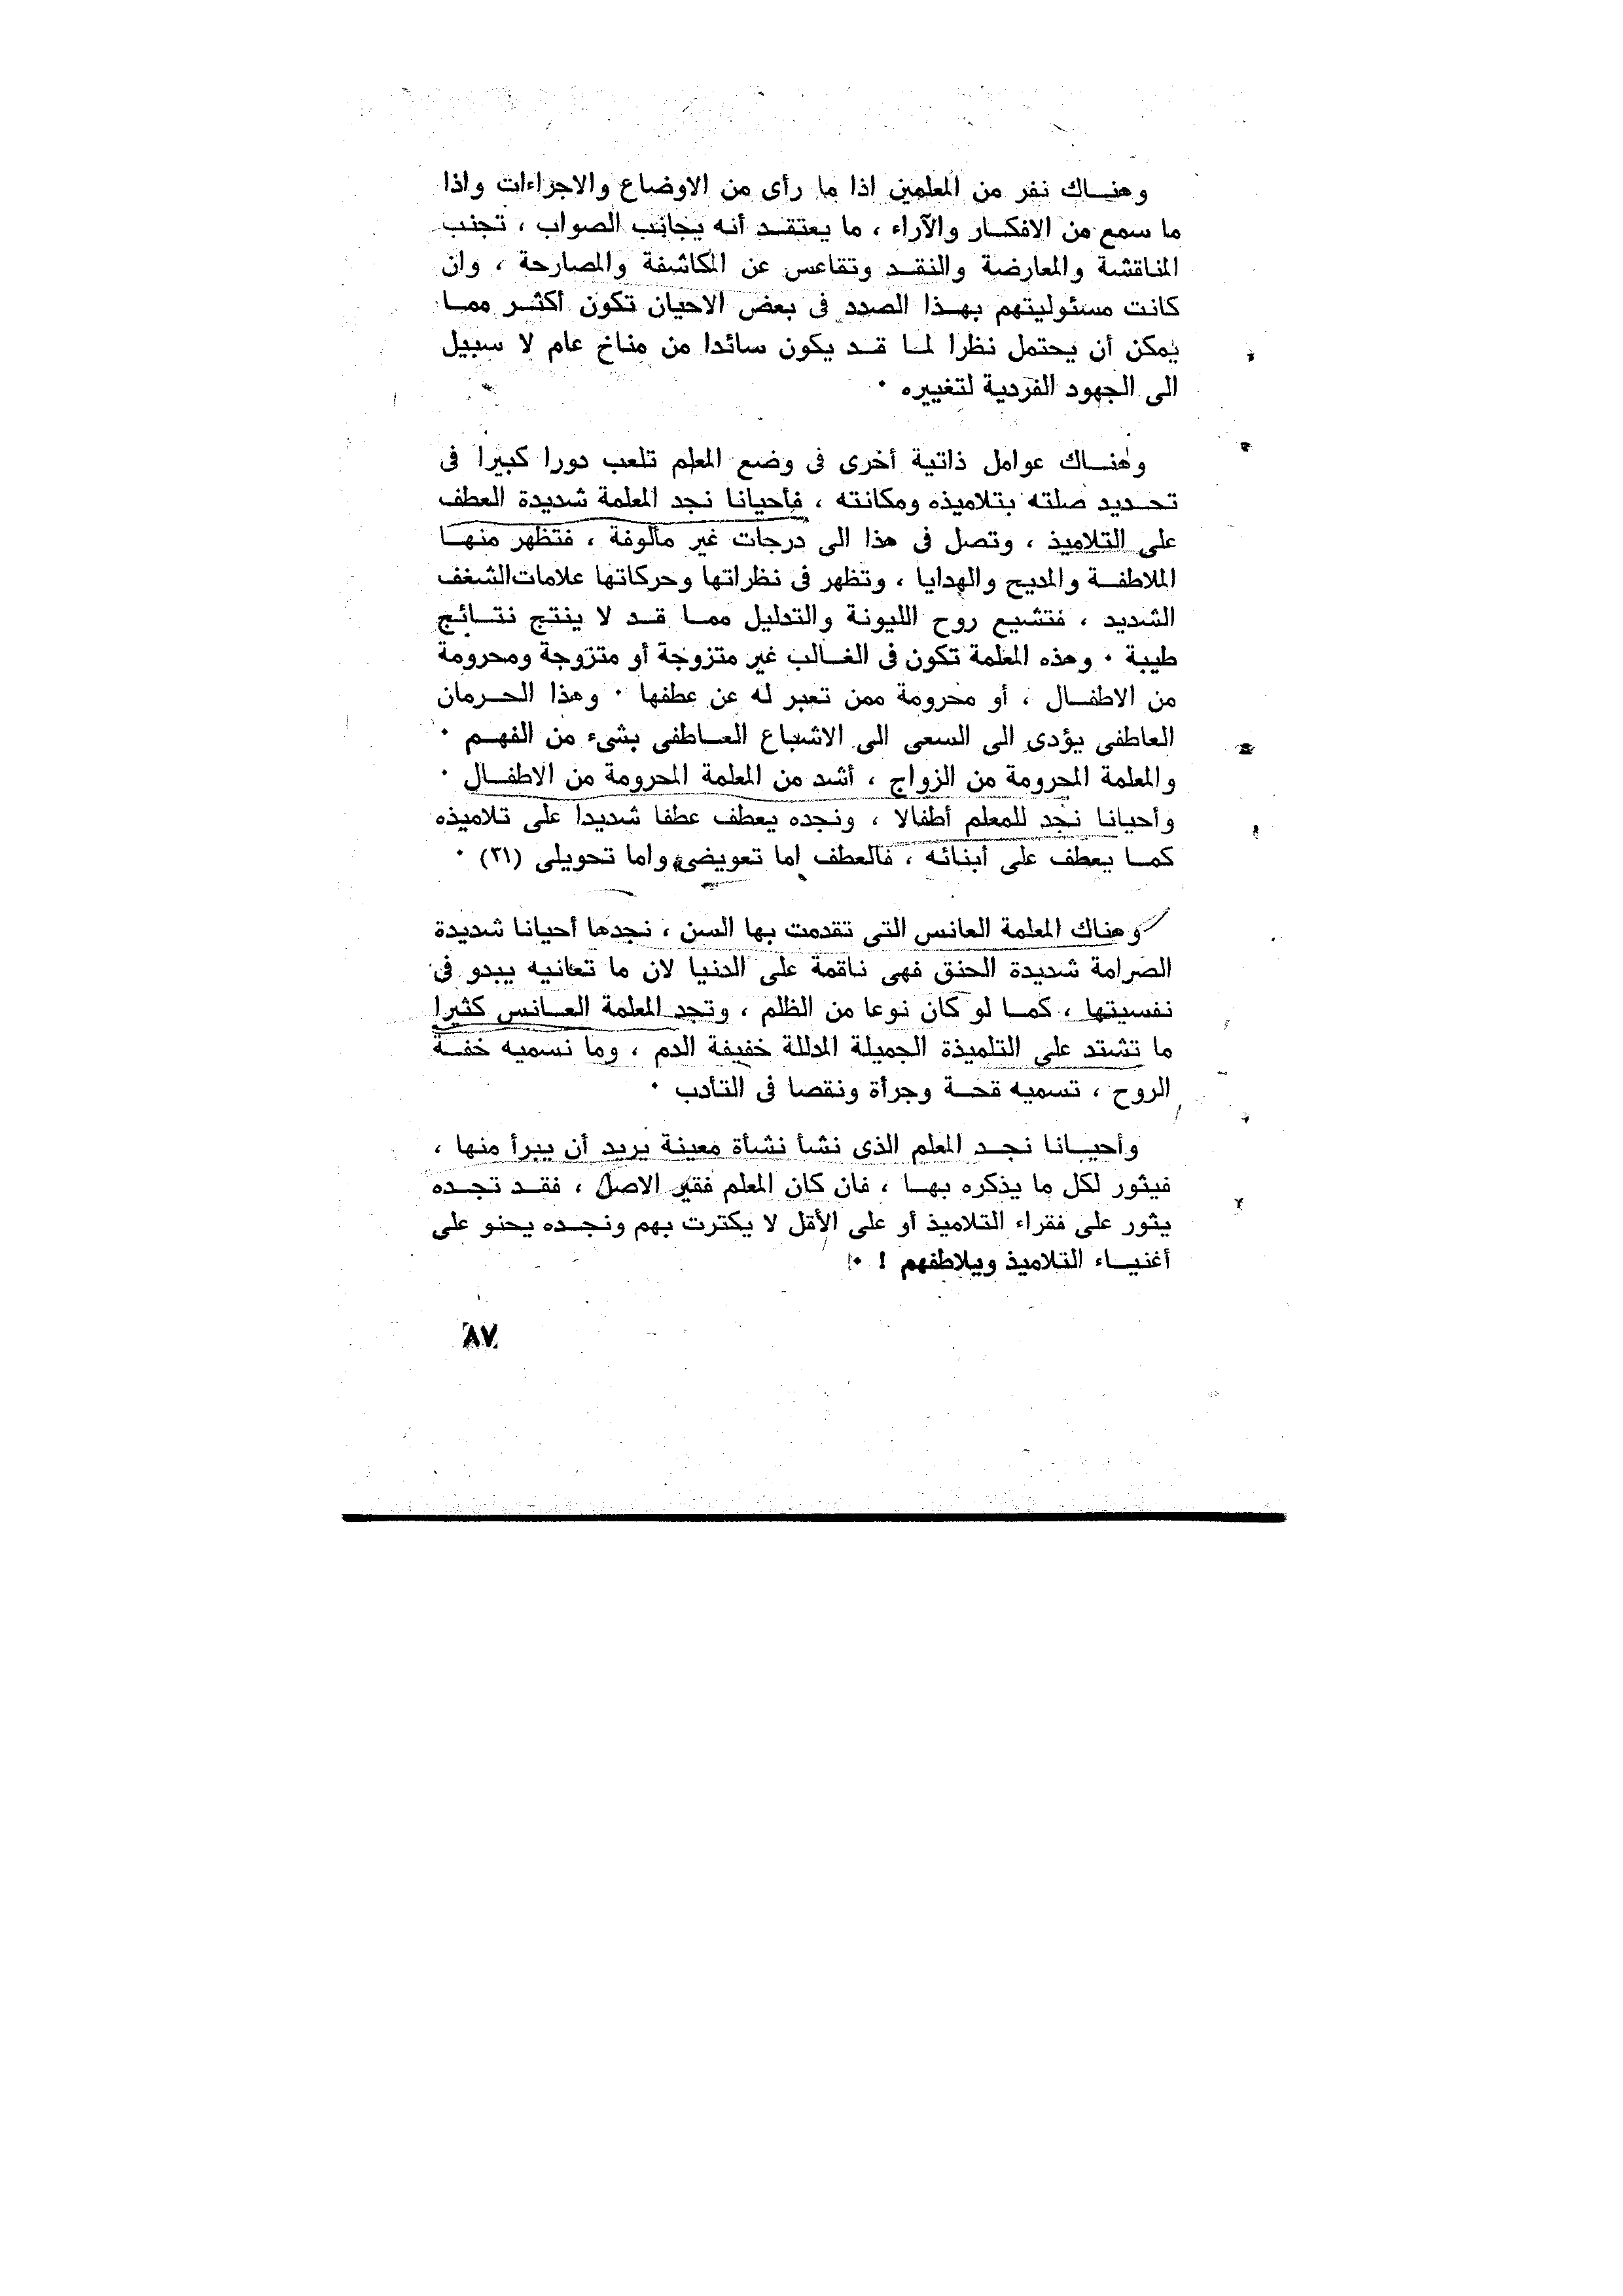 وهنـاك نفر من المعلمين اذا ما رأى من الاوضاع والاجراءات واذا
ما سمع من الافكـار والآراء ، ما يعتقـد أنه يجانب الصواب ، تجنب
المناقشة والمعارضة والنقـد وتقاعس عن المكاشفة والمصارحة ، وان
كانت مسئوليتهم بهـذا الصدد فى بعض الاحيان تكون أكثـر ممـا
يمكن أن يحتمل نظرا لمـا قـد يكون سائدا من مناخ عام لا سبيل
الى الجهود الفردية لتغييره ٠
وهنـاك عوامل ذاتية أخرى فى وضع المعلم تلعب دورا كبيرا فى
تحـديد صلته بتلاميذه ومكانته ، فأحيانا نجد المعلمة شديدة العطف
على التلاميذ ، وتصل فى هذا الى درجات غير مألوفة ، فتظهر منهـا
الملاطفـة والمديح والهدايا ، وتظهر فى نظراتها وحركاتها علامات الشغف
الشديد ، فتشيع روح الليونة والتدليل ممـا قـد لا ينتج نتـائج
طيبة ٠ وهذه المعلمة تكون فى الغـالب غير متزوجة أو متزوجة ومحرومة
من الاطفـال ، أو محرومة ممن تعبر له عن عطفها ٠ وهذا الحـرمان
العاطفى يؤدى الى السعى الى الاشباع العـاطفى بشىء من الفهـم ٠
والمعلمة المحرومة من الزواج ، أشد من المعلمة المحرومة من الاطفـال ٠
وأحيانا نجد للمعلم أطفالا ، ونجده يعطف عطفا شديدا على تلاميذه
كمـا يعطف على أبنائه ، فالعطف اما تعويضى واما تحويلى (٣١) ٠
وهناك المعلمة العانس التى تقدمت بها السن ، نجدها أحيانا شديدة
الصرامة شديدة الحنق فهى ناقمة على الدنيا لان ما تعانيه يبدو فى
نفسيتها ، كمـا لو كان نوعا من الظلم ، وتجد المعلمة العـانس كثيرا
ما تشتد على التلميذة الجميلة المدللة خفيفة الدم ، وما نسميه خفـة
الروح ، تسميه قحـة وجرأة ونقصا فى التأدب ٠
وأحيـانا نجـد المعلم الذى نشأ نشأة معينة يريد أن يبرأ منها ،
فيثور لكل ما يذكره بهـا ، فان كان المعلم فقير الاصل ، فقـد تجـده
يثور على فقراء التلاميذ أو على الأقل لا يكترت بهم ونجـده يحنو على
أغنيـاء التلاميذ ويلاطفهم ! ٠
٨٧